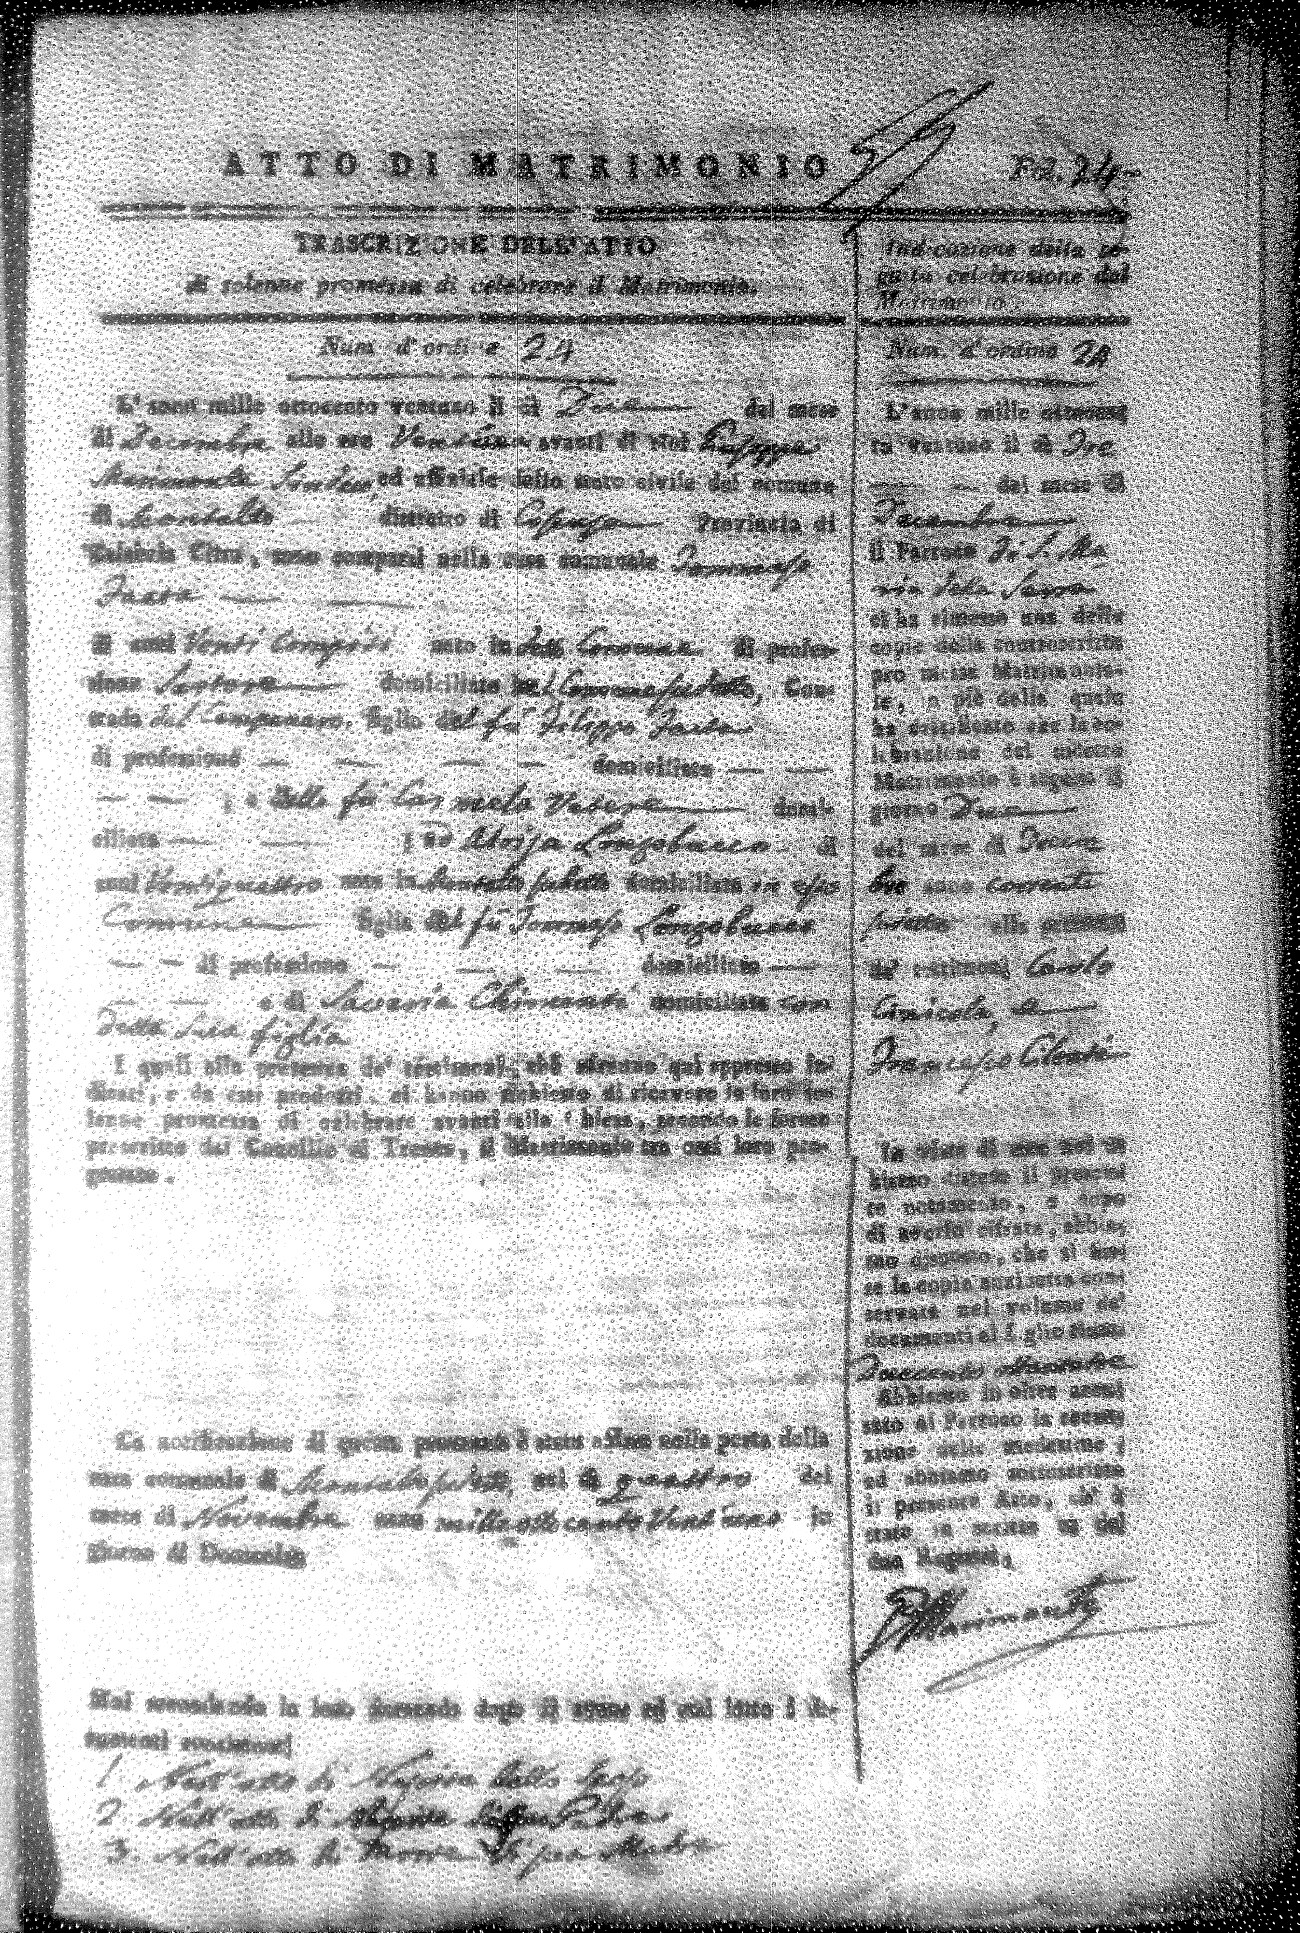 ATTO DI MATRIMONIO
Fol. 24
TRASCRIZIONE DELL'ATTO
di solenne promessa di celebrare il Matrimonio.
Num. d'ordine 24
L'anno mille ottocento ventuno il dì Due del mese
di Decembre alle ore avanti di Noi Giuseppe
Marimonte Sindaco, ed uffiziale dello stato civile del comune
di Montalto distretto di Cosenza Provincia di
Calabria Citra, sono comparsi nella casa comunale Tommaso
di anni Venti Compiti nato in detto Comune di profes-
sione Sartore domiciliato nel Comune sudetto, Con-
trada del Campanaro, figlio del fù Filippo
di professione domiciliato
; e della fù Carmela domi-
ciliata ; ed Aloisa Longobucco di
anni Ventiquattro nata in Montalto sudetto domiciliata in esso
Comune figlia del fù Tommaso Longobucco
di professione domiciliato
e di Saveria Chimenti domiciliata con
detta sua figlia
I quali alla presenza de' testimonj, che saranno qui appresso in-
dicati, e da essi prodotti, ci hanno richiesto di ricevere la loro so-
lenne promessa di celebrare avanti alla Chiesa, secondo le forme
prescritte dal Concilio di Trento, il Matrimonio tra essi loro pro-
gettato.
La notificazione di questa promessa è stata affissa nella porta della
casa comunale di Montalto sudetto, nel dì quattro del
mese di Novembre anno mille ottocento Vent'uno in
giorno di Domenica
Noi secondando la loro domanda dopo di avere ad essi letto i do-
cumenti consistenti
1. Nell'atto di Nascita dello Sposo
2. Nell'atto di
3. Nell'atto di Morte di sua Madre
Indicazione della se-
guita celebrazione del
Matrimonio.
Num. d'ordine 24
L'anno mille ottocen-
to ventuno il dì Tre
del mese di
Decembre
il Parroco di S. Ma-
ria della Serra
ci ha rimesso una delle
copie della controscritta
promessa Matrimonia-
le, a piè della quale
ha certificato che la ce-
lebrazione del suddetto
Matrimonio è seguita il
giorno Due
del mese di Decem
bre anno corrente
alla presenza
de' testimonj Carlo
Cinicola, e
Francesco Chenti
In vista di essa noi ab-
biamo disteso il presen-
te notamento, e dopo
di averla cifrata, abbia-
mo disposto, che si fos-
se la copia anzidetta con-
servata nel volume de'
documenti al foglio
Abbiamo in oltre accu-
sato al Parroco la rece-
zione della medesima;
ed abbiamo sottoscritto
il presente Atto, ch' è
stato in scritto su dei
due Registri.
Marimonte